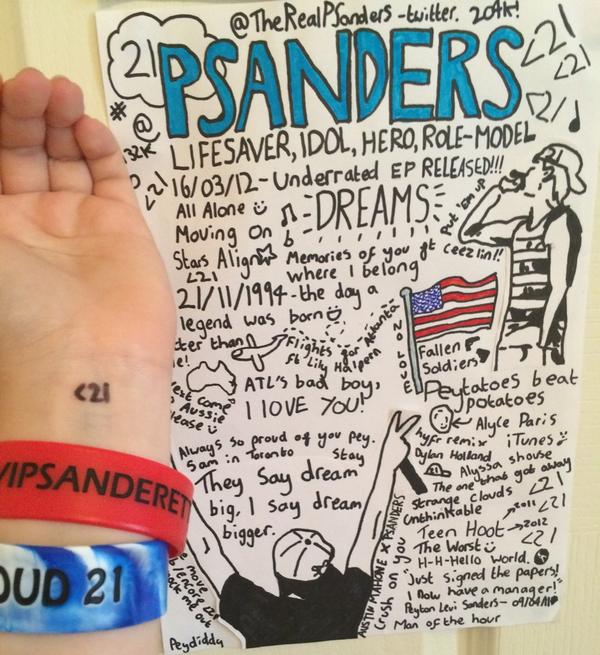 @TheRealPSanders - twitter. 204K!
21
PSANDERS
<21
<21
#
@
LIFESAVER, IDOL, HERO, ROLE-MODEL
<21
16/03/12 - Underrated EP RELEASED!!!
All Alone
DREAMS
Put 'em up
Moving On
Stars Align
Memories of you ft Ceezlin!!
where I belong
<21
21/11/1994 - the day a
legend was born
Flights for Atlanta
ft Lily Halpern
NO LOVE
Fallen
Soldiers
ATL's bad boy,
I LOVE YOU!
Aussie
Please
Peytatoes beat
potatoes
Alyce Paris
hyfr remix
iTunes
Dylan Holland
Alyssa Shouse
The one that got away
Always so proud of you Pey.
5am in Toronto
Stay
They Say dream
big, I say dream
bigger.
strange clouds
<21
Unthinkable
2011
<21
Teen Hoot → 2012
<21
The Worst
H-H-Hello World.
"Just signed the papers!
I now have a manager!"
Peyton Levi Sanders -
Man of the hour
AUSTIN MAHONE X PSANDERS
Crush on you
Peydiddy
<21
VIPSANDERET
OUD 21